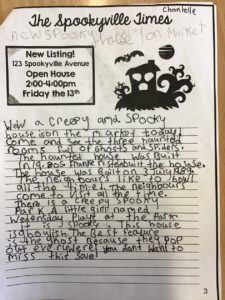 Chantelle
The Spookyville Times
New spooky house on Market
New Listing!
123 Spookyville Avenue
Open House
2:00-4:00pm
Friday the 13th
Wow a creepy and spooky
house on the market today!
come and see the three haunted
rooms full of ghosts and spiders.
The haunted house was built
in 19 built the house.
The house was built on 3 July
The neighbours like to howl
all the time! The neighbours
come to visit all the time.
There is a creepy spooky
Park A little girl named
Wednesday plays at the Park.
It is spooky. This house
is ghoulish The Best feature
is the ghost Because they pop
out everywhere! you don't want to
miss this save!
3